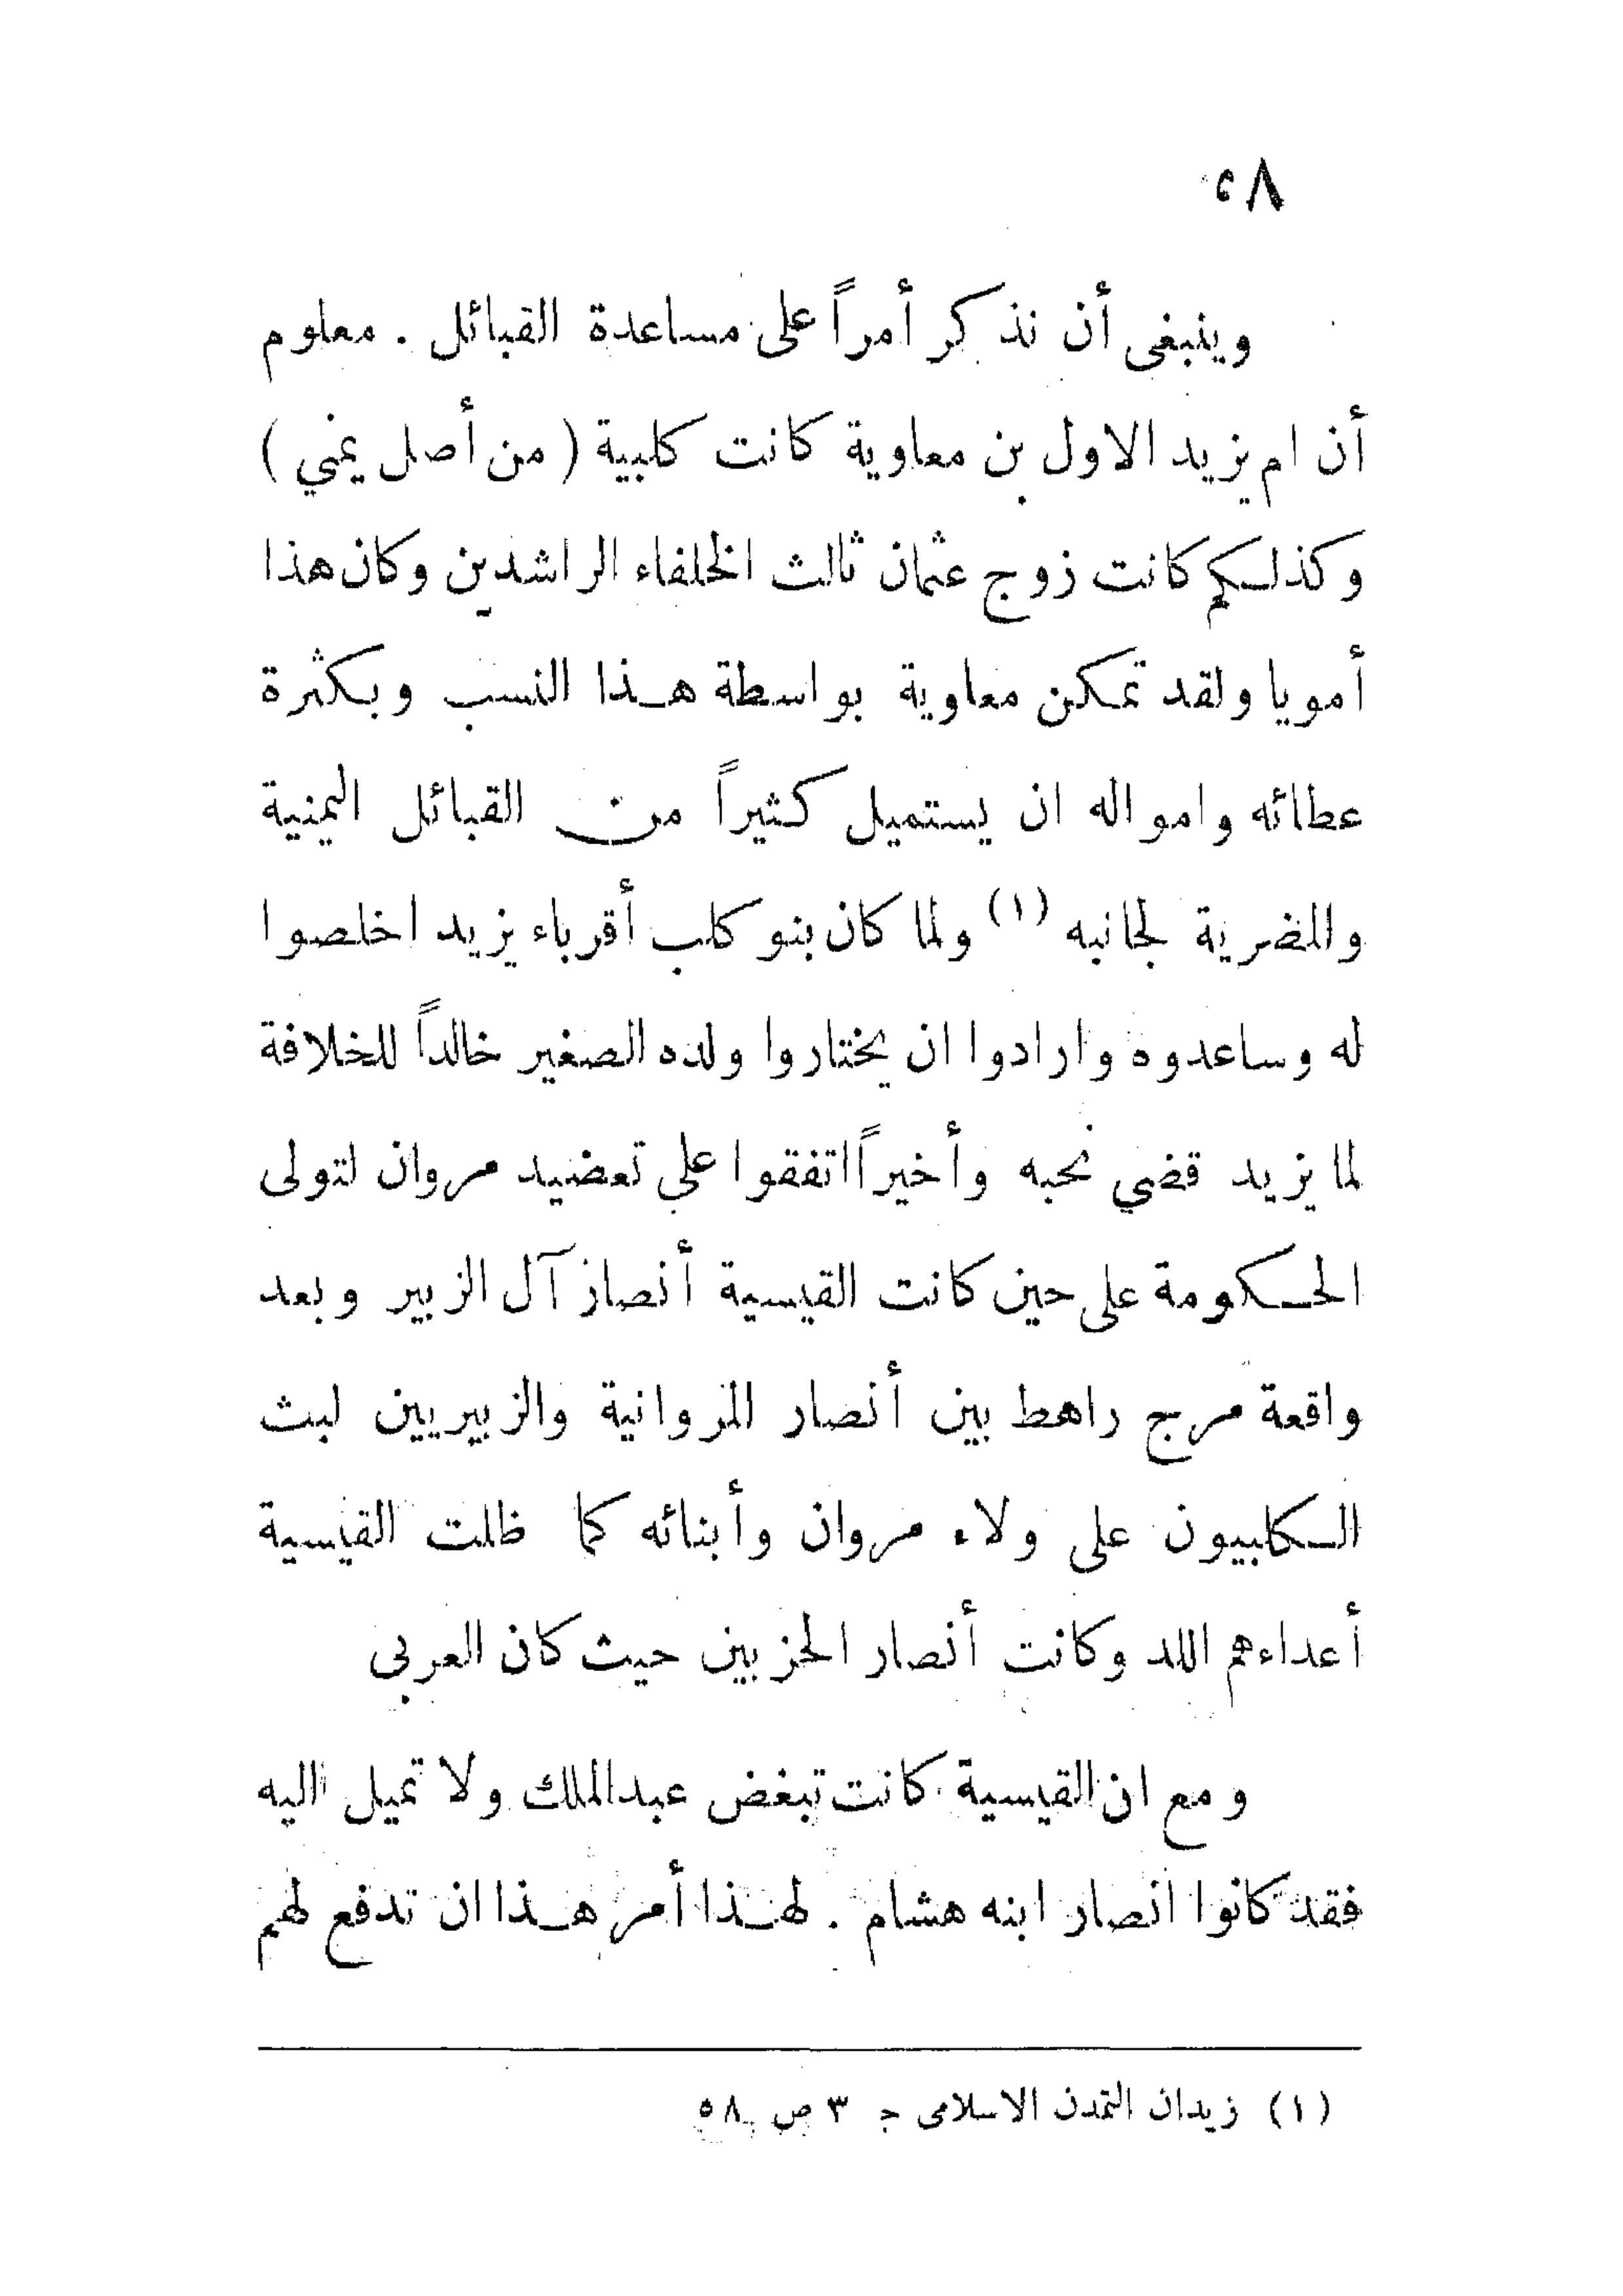 ٨٥
وينبغى أن نذكر أمراً على مساعدة القبائل . معلوم
أن ام يزيد الاول بن معاوية كانت كلبية ( من أصل يمني )
وكذلكم كانت زوج عثمان ثالث الخلفاء الراشدين وكان هذا
أمويا ولقد تمكن معاوية بواسطة هذا النسب وبكثرة
عطائه وامواله ان يستميل كثيراً من القبائل اليمنية
والمضرية لجانبه (١) ولما كان بنو كلب أقرباء يزيد اخلصوا
له وساعدوه وارادوا ان يختاروا ولده الصغير خالداً للخلافة
لما يزيد قضي نحبه وأخيراً اتفقوا على تعضيد مروان لتولى
الحكومة على حين كانت القيسية أنصار آل الزبير وبعد
واقعة مرج راهط بين أنصار المروانية والزبيريين لبث
الكلبيون على ولاء مروان وأبنائه كما ظلت القيسية
أعداءهم اللد وكانت أنصار الحزبين حيث كان العربى
ومع ان القيسية كانت تبغض عبدالملك ولا تميل اليه
فقد كانوا انصار ابنه هشام . لهذا أمر هذا ان تدفع لهم
(١) زيدان التمدن الاسلامى ج ٣ ص ٥٨